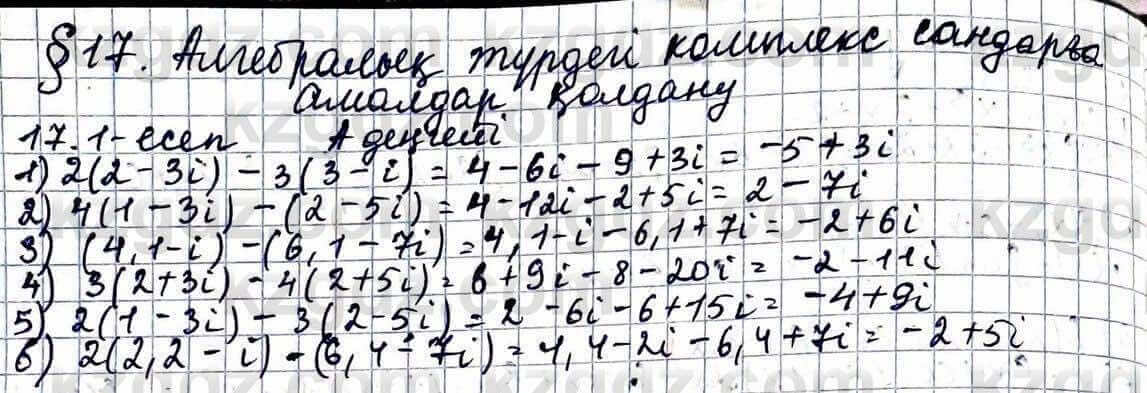 § 17. Алгебралық түрдегі комплекс сандарға
амалдар қолдану
17.1-есеп А деңгейі
1) 2(2-3i) - 3(3-i) = 4-6i-9+3i = -5+3i
2) 4(1-3i) - (2-5i) = 4-12i-2+5i = 2-7i
3) (4,1-i) - (6,1-7i) = 4,1-i-6,1+7i = -2+6i
4) 3(2+3i) - 4(2+5i) = 6+9i-8-20i = -2-11i
5) 2(1-3i) - 3(2-5i) = 2-6i-6+15i = -4+9i
6) 2(2,2-i) - (6,4-7i) = 4,4-2i-6,4+7i = -2+5i